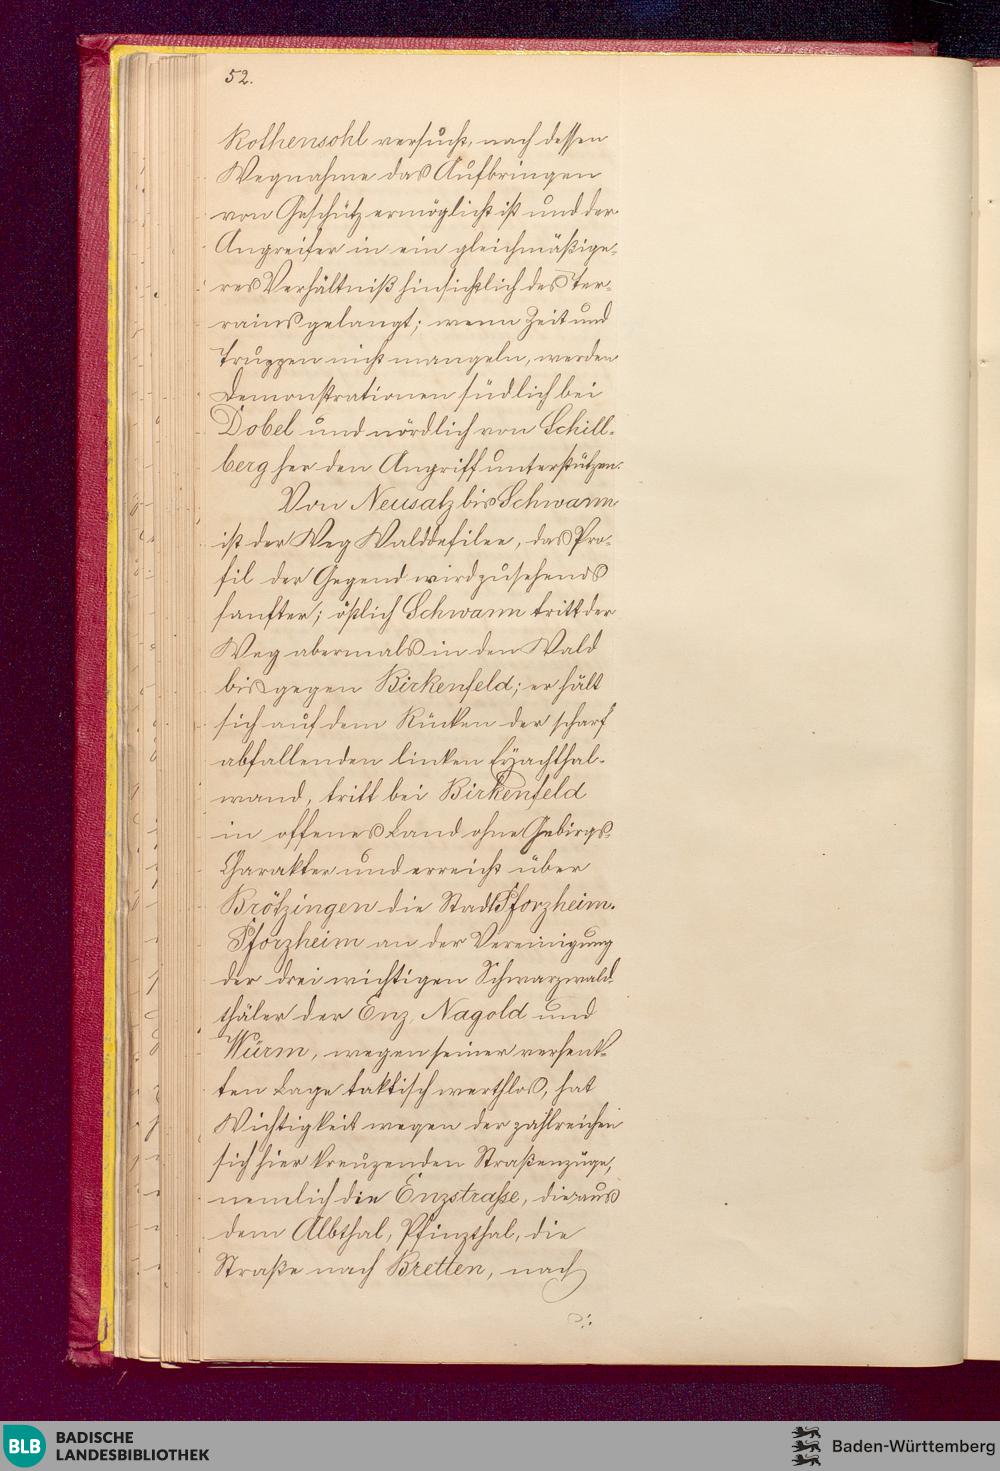 52.
Rothensohl versucht, nach dessen
Wegnahme das Aufbringen
von Geschütz ermöglicht ist und der
Angreifer in ein gleichmäßige-
res Verhältniß hinsichtlich des Ter-
rains gelangt; wenn Zeit und
Truppen nicht mangeln, werden
Demonstrationen südlich bei
Dobel und nördlich von Schill-
berg her den Angriff unterstützen.
Von Neusatz bis Schwann
ist der Weg Walddefilee, das Pro-
fil der Gegend wird zusehends
sanfter; östlich Schwann tritt der
Weg abermals in den Wald
bis gegen Birkenfeld; er hält
sich auf dem Rücken der scharf
abfallenden linken Eyachthal-
wand, tritt bei Birkenfeld
in offenes Land ohne Gebirgs-
Charakter und erreicht über
Brötzingen die Stadt Pforzheim.
Pforzheim an der Vereinigung
der drei wichtigen Schwarzwald-
thäler der Enz, Nagold und
Würm, wegen seiner versenk-
ten Lage taktisch werthlos, hat
Wichtigkeit wegen der zahlreichen
sich hier kreuzenden Straßenzüge,
nemlich die Enzstraße, die aus
dem Albthal, Pfinzthal, die
Straße nach Bretten, nach
BLB
BADISCHE
LANDESBIBLIOTHEK
Baden-Württemberg